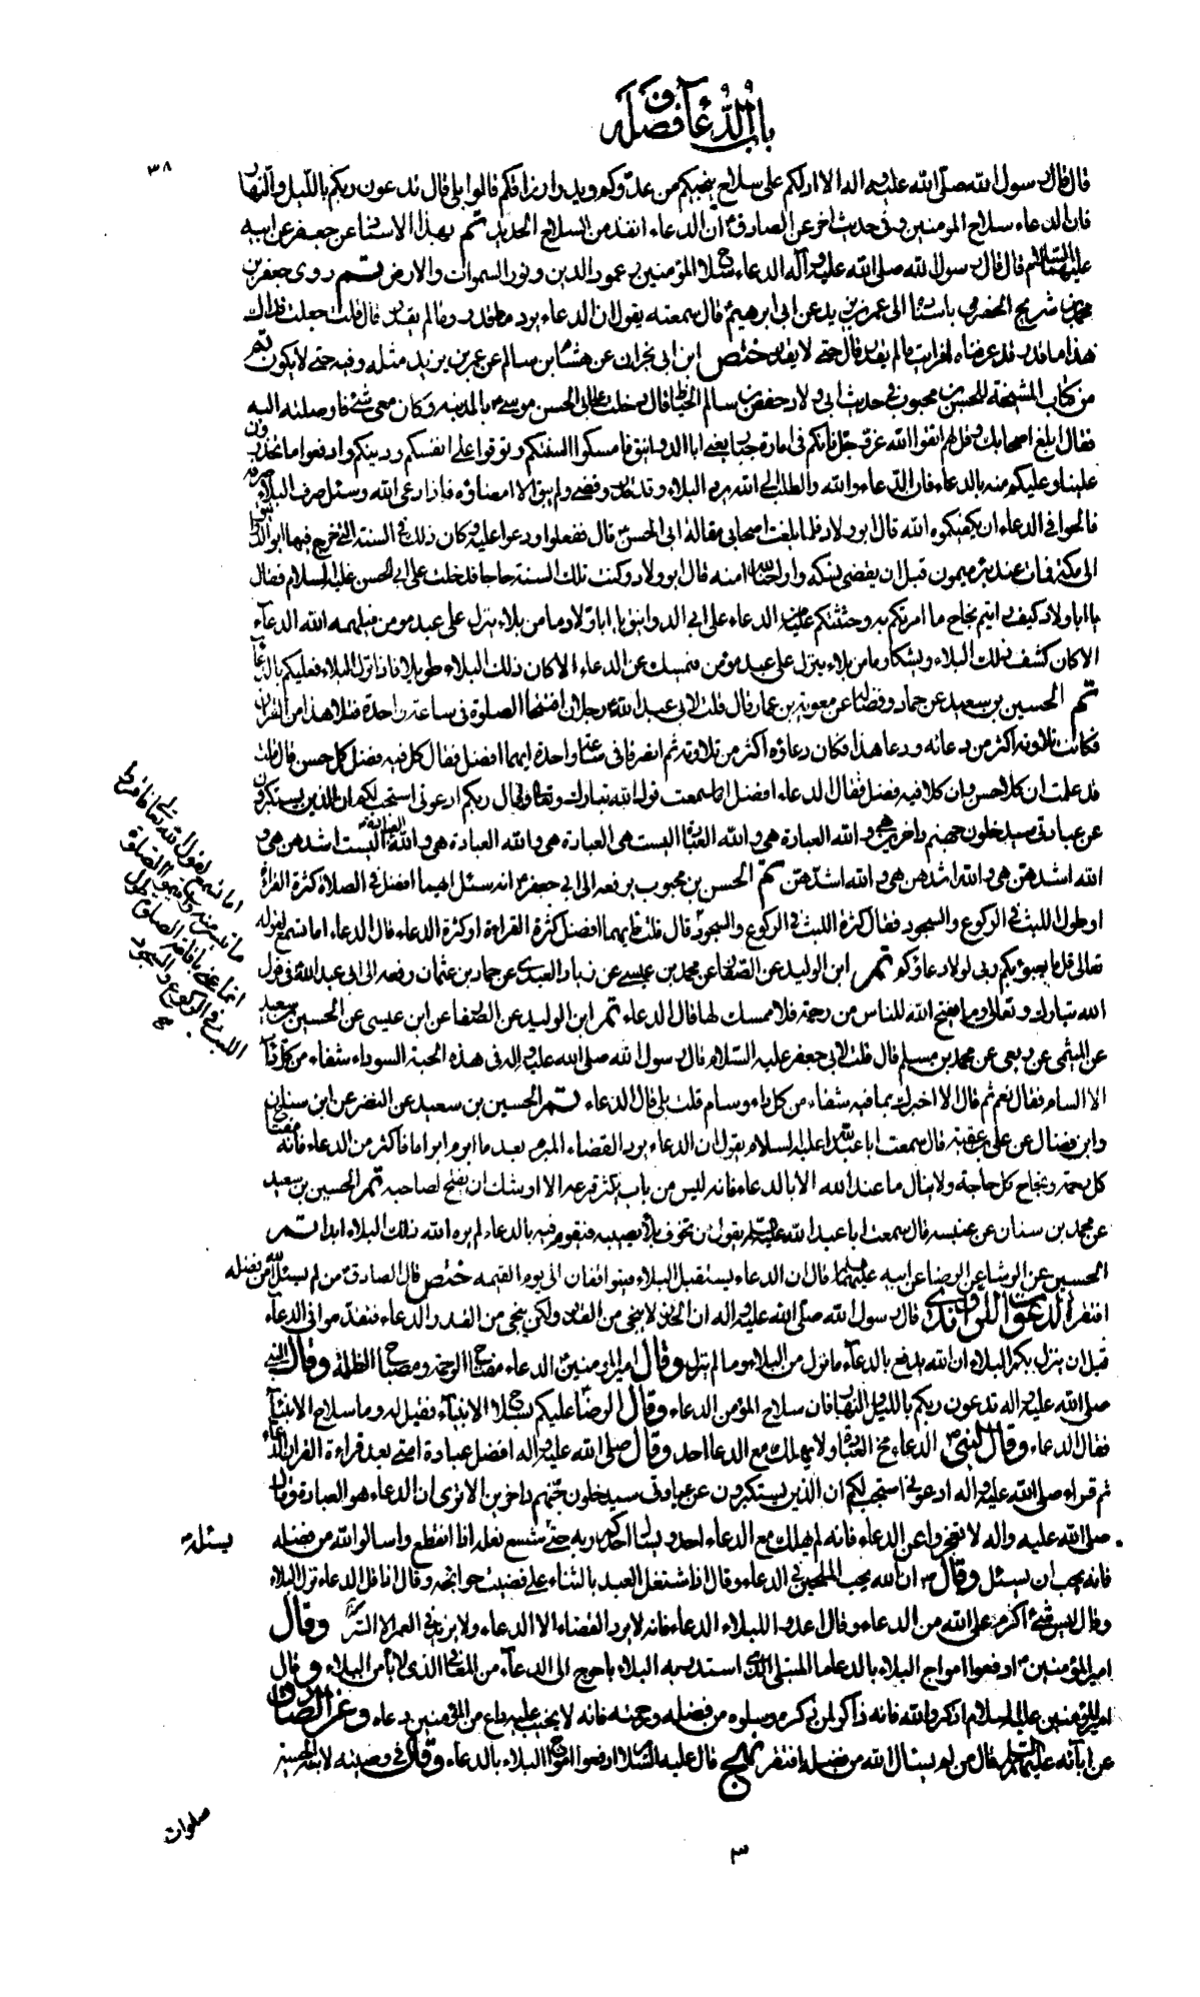 باب الدعاء وفضله
٣٨
قال قال رسول الله صلى الله عليه واله الا ادلكم على سلاح ينجيكم من عدوكم ويدر ارزاقكم قالوا بلى قال تدعون ربكم بالليل والنهار
فان الدعاء سلاح المؤمنين وفى حديث اخر عن الصادق ع ان الدعاء انفذ من السلاح الحديد تم بهذا الاسناد عن جعفر عن ابيه
عليهما السلام قال قال رسول الله صلى الله عليه وآله الدعاء سلاح المؤمنين وعمود الدين ونور السموات والارض تم روى جعفر بن
محمد بن شريح الحضرمى باسناده الى عمر بن يزيد عن ابى ابرهيم ع قال سمعته يقول ان الدعاء يرد ما قدر وما لم يقدر قال قلت جعلت فداك
هذا ما قدر قد عرفناه افرايت ما لم يقدر قال حتى لا يقدر ختص ابن ابى نجران عن هشام بن سالم عن عمر بن يزيد مثله وفيه حتى لا يكون تم
من كتاب المشيخة للحسن بن محبوب فى حديث ابى ولاد حفص بن سالم الحناط قال دخلت على ابى الحسن موسى ع بالمدينه وكان معى شئ فاوصلته اليه
فقال ابلغ اصحابك وقل لهم اتقوا الله عز وجل فانكم فى امارة جبار يعنى ابا الدوانيق فامسكوا السنتكم وتوقوا على انفسكم ودينكم وادفعوا ما تحذرون
علينا وعليكم منه بالدعاء فان الدعاء والله والطلب الى الله يرد البلاء وقد قدر وقضى ولم يبق الا امضاؤه فاذا دعى الله وسئل صرف البلاء صرفه
فالحوا فى الدعاء ان يكفيكموه الله قال ابو ولاد فلما ابلغت اصحابى مقالة ابى الحسن ع قال ففعلوا ودعوا عليه وكان ذلك فى السنة التى خرج فيها ابو الدوانيق
الى مكة فمات عند بئر ميمون قبل ان يقضى نسكه واراحنا الله منه قال ابو ولاد وكنت تلك السنة حاجا فدخلت على ابى الحسن عليه السلام فقال
يا ابا ولاد كيف رايتم نجاح ما امرتكم به وحثثتكم عليه من الدعاء على ابى الدوانيق يا ابا ولاد ما من بلاء ينزل على عبد مومن فيلهمه الله الدعاء
الا كان كشف ذلك البلاء وشيكا وما من بلاء ينزل على عبد مؤمن فيمسك عن الدعاء الا كان ذلك البلاء طويلا فاذا نزل البلاء فعليكم بالدعاء
تم الحسين بن سعيد عن حماد وفضالة عن معوية بن عمار قال قلت لابى عبد الله ع رجلان افتتحا الصلوة فى ساعة واحدة فتلا هذا من القران
فكانت تلاوته اكثر من دعائه ودعا هذا فكان دعاؤه اكثر من تلاوته ثم انصرفا فى ساعة واحدة ايهما افضل فقال كل فيه فضل كل حسن قال قلت
قد علمت ان كلا حسن وان كلا فيه فضل فقال الدعاء افضل اما سمعت قول الله تبارك وتعالى وقال ربكم ادعونى استجب لكم ان الذين يستكبرون
عن عبادتى سيدخلون جهنم داخرين هى والله العبادة هى والله العبادة اليست هى العبادة هى والله العبادة هى والله العبادة اليست اشدهن هى و
الله اشدهن هى والله اشدهن هى والله اشدهن تم الحسن بن محبوب يرفعه الى ابى جعفر ع انه سئل ايهما افضل فى الصلاة كثرة القراءة
او طول اللبث فى الركوع والسجود فقال كثرة اللبث فى الركوع والسجود قال قلت فايهما افضل كثرة القراءة او كثرة الدعاء قال الدعاء اما تسمع لقوله
تعالى قل ما يعبؤ بكم ربى لولا دعاؤكم تم ابن الوليد عن الصفار عن محمد بن عيسى عن زياد العبدى عن حماد بن عثمان رفعه الى ابى عبد الله ع فى قول
الله تبارك وتعالى وما يفتح الله للناس من رحمة فلا ممسك لها قال الدعاء تم ابن الوليد عن الصفار عن ابن عيسى عن الحسين بن سعيد
عن الميثمى عن ربعى عن محمد بن مسلم قال قلت لابى جعفر عليه السلام قال رسول الله صلى الله عليه واله فى هذه الحبة السوداء شفاء من كل داء
الا السام فقال نعم ثم قال الا اخبرك بما فيه شفاء من كل داء وسام قلت بلى قال الدعاء تم الحسين بن سعيد عن النضر عن ابن سنان
وابن فضال عن على بن عقبة قال سمعت ابا عبد الله عليه السلام يقول ان الدعاء يرد القضاء المبرم بعد ما ابرم ابراما فاكثر من الدعاء فانه مفتاح
كل رحمة ونجاح كل حاجة ولا ينال ما عند الله الا بالدعاء فانه ليس من باب يكثر قرعه الا اوشك ان يفتح لصاحبه تم الحسين بن سعيد
عن محمد بن سنان عن عنبسه قال سمعت ابا عبد الله عليه السلام يقول من تخوف بلاء يصيبه فتقدم فيه بالدعاء لم يره الله ذلك البلاء ابدا تم
الحسين عن الوشا عن الرضا عن ابيه عليهما السلام قال ان الدعاء يستقبل البلاء فيتوافقان الى يوم القيمه ختص قال الصادق ع من لم يسئل الله من فضله
افتقر الدعوات للراوندى قال رسول الله صلى الله عليه واله ان الحذر لا ينجى من القدر ولكن ينجى من القدر الدعاء فتقدموا فى الدعاء
قبل ان ينزل بكم البلاء ان الله يدفع بالدعاء ما نزل من البلاء وما لم ينزل وقال امير المؤمنين ع الدعاء مفتاح الرحمة ومصباح الظلمة وقال النبى
صلى الله عليه واله تدعون ربكم بالليل والنهار فان سلاح المؤمن الدعاء وقال الرضا ع عليكم بسلاح الانبياء فقيل له وما سلاح الانبياء
فقال الدعاء وقال النبى ص الدعاء مخ العبادة ولا يهلك مع الدعاء احد وقال صلى الله عليه واله افضل عبادة امتى بعد قراءة القران الدعاء
ثم قراء صلى الله عليه واله ادعونى استجب لكم ان الذين يستكبرون عن عبادتى سيدخلون جهنم داخرين الا ترى ان الدعاء هو العبادة وقال
صلى الله عليه واله لا تعجزوا عن الدعاء فانه لم يهلك مع الدعاء احد وليسال احدكم ربه حتى شسع نعله اذا انقطع واسالوا الله من فضله
فانه يحب ان يسئل وقال ص ان الله يحب الملحين فى الدعاء وقال اذا اشتغل العبد بالثناء على قضيت حوائجه وقال اذا قل الدعاء نزل البلاء
وقال ليس شئ اكرم على الله من الدعاء وقال اعدوا للبلاء الدعاء فانه لا يرد القضاء الا الدعاء ولا يزيد فى العمر الا البر وقال
امير المؤمنين ع ادفعوا امواج البلاء بالدعاء ما المبتلى الذى استدر به البلاء باحوج الى الدعاء من المعافى الذى لا يامن البلاء وقال
امير المؤمنين عليه السلام اذكروا الله فانه ذاكر لمن ذكره وسلوه من فضله ورحمته فانه لا يخيب عليه داع من المؤمنين دعاه وعن الصادق
عن ابائه عليهم السلام قال من لم يسال الله من فضله افتقر نهج قال عليه السلام ادفعوا امواج البلاء بالدعاء وقال فى وصيته لابنه الحسن
اما تسمع لقول الله تعالى فاقرؤا
ما تيسر منه واقيموا الصلوة
انما عنى باقامة الصلوة طول
اللبث فى الركوع والسجود
صح
يسئله
صلوات
٣